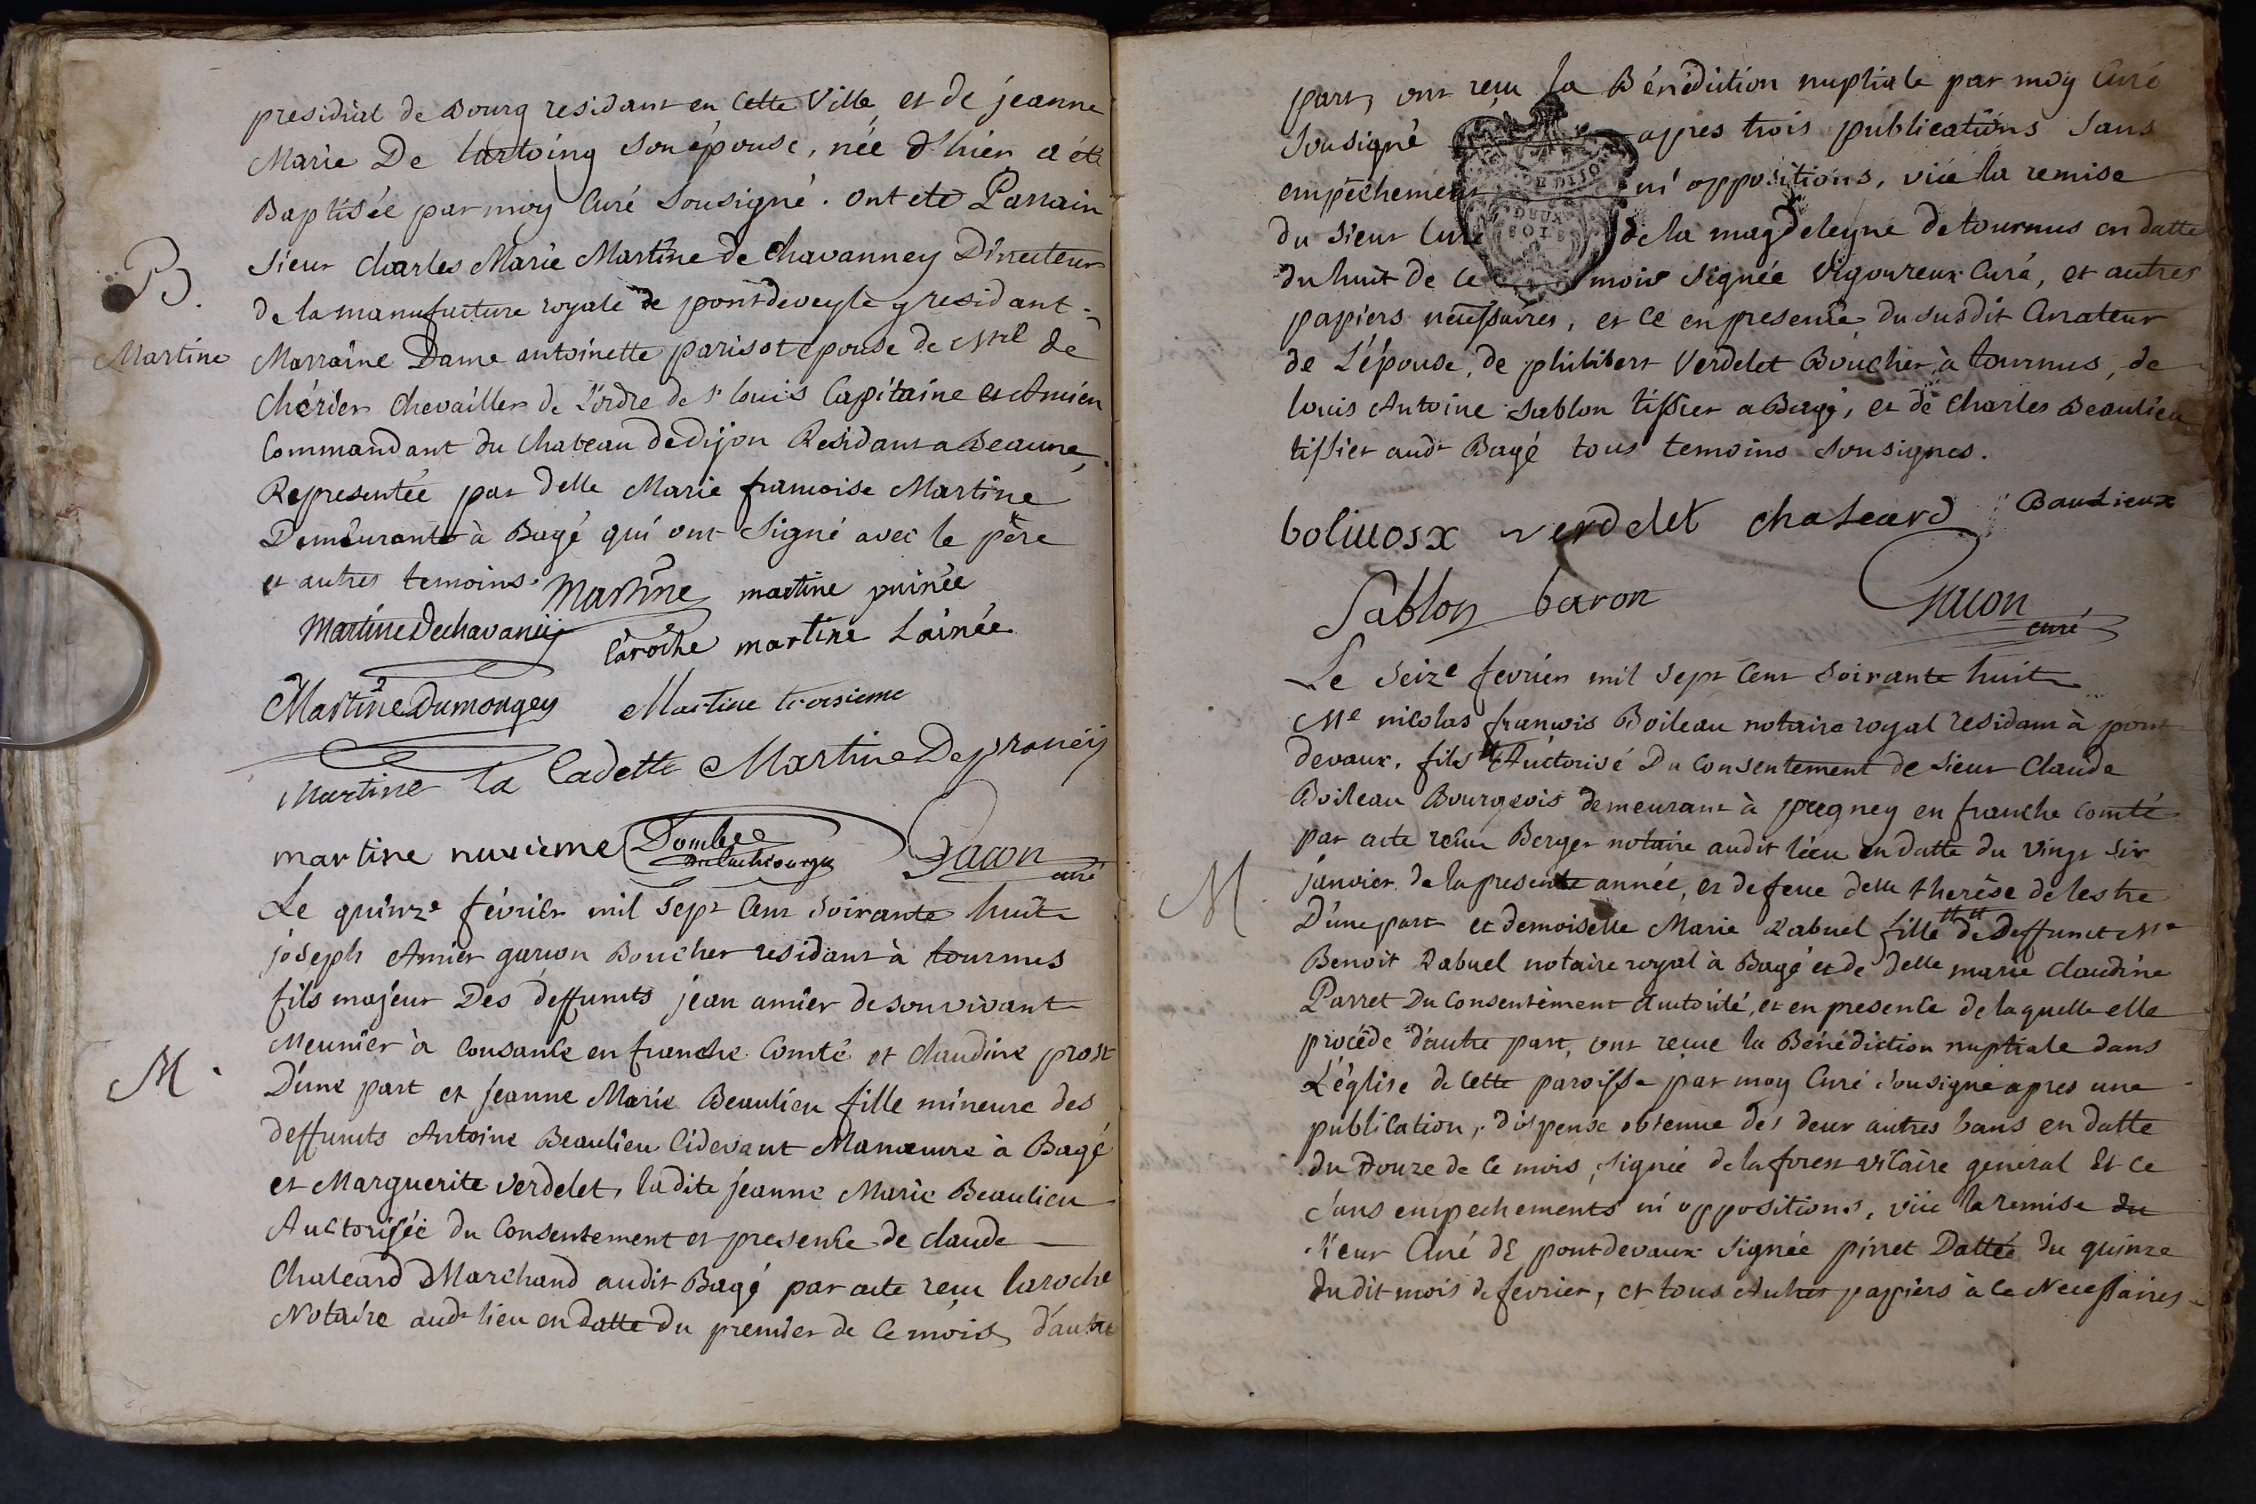 presidial de Bourg residant en Cette Ville et de jeanne
Marie De lartoing son épouse, née d'hier a été
Baptisée par moy Curé Sousigné. ont ete Parrain
Sieur Charles Marie Martine de Chavanney Directeur
B.
de la manufacture royale de pontdeveyle y residant
Martine
Marraine Dame antoinette parisot epouse de Mre de
Chérier Chevailler de l'ordre de st louis Capitaine et Amien
Commandant du Chateau de dijon Residant a Beaune,
Representée par delle Marie francoise Martine
Demeurante à Bagé qui ont Signé avec le père
et autres temoins. Martine martine puinée
Martine Dechavaney laroche martine Lainée
Martine Dumongey Martine troisieme
Martine la Cadette Martine Depraneÿ
martine nuxieme Dombe Gacon curé
Le quinze février mil Sept Cent Soixante huit
joseph Amier garson Boucher residant à tournus
fils majeur Des deffunts jean amier de son vivant
Meunier à Cousance en franche Comté et claudine prost
M.
D'une part et Jeanne Marie Beaulieu fille mineure des
deffunts Antoine Beaulieu Cidevant Manœuvre à Bagé
et Marguerite Verdelet, ladite jeanne Marie Beaulieu
Auctorisée du Consentement et presence de claude
Chaleard Marchand audit Bagé par acte reçu laroche
Notaire audt lieu en datte du premier de Ce mois d'autre
part, ont reçu la Bénédiction nuptiale par moy Curé
Sousigné apres trois publications Sans
empêchement ni oppositions, vüe la remise
DE DIJON
DEUX
SOLS
du Sieur Curé de la magdeleyne de tournus en datte
du huit de Ce mois Signée Vigoureux Curé, et autres
papiers necessaires, et Ce en presence du susdit Curateur
de L'épouse, de philibert Verdelet Boucher à tournus, de
louis Antoine Sablon tissier a Bagé, et de Charles Beaulieu
tissier audt Bagé tous temoins Sousignes.
boliuosx verdelet chaleard Baulieux
Sablon baron Gacon curé
Le Seize fevrier mil Sept Cent Soixante huit
Me nicolas francois Boileau notaire royal residant à pont
devaux, fils Auctorisé Du Consentement de Sieur Claude
Boileau Bourgeois demeurant à pregney en franche Comté
par acte recu Berger notaire audit lieu en datte du vingt Six
M.
janvier de la presente année, et de feue delle therèse de lestre
D'une part et demoiselle Marie Rabuel fille de deffunct Me
Benoit Rabuel notaire royal à Bagé et de delle marie claudine
Parret Du Consentement Auctorité, et en presence de laquelle elle
procède d'autre part, ont reçue la Bénédiction nuptiale dans
L'église de Cette paroisse par moy Curé Sousigné apres une
publication, dispense obtenue des deux autres bans en datte
du Douze de Ce mois, Signée de la forest vicaire general Et Ce
Sans empechements ni oppositions, vüe la remise du
Sieur Curé de pontdevaux Signée pinet Dattée du quinze
du dit mois de fevrier, et tous Autres papiers à Ce Necessaires